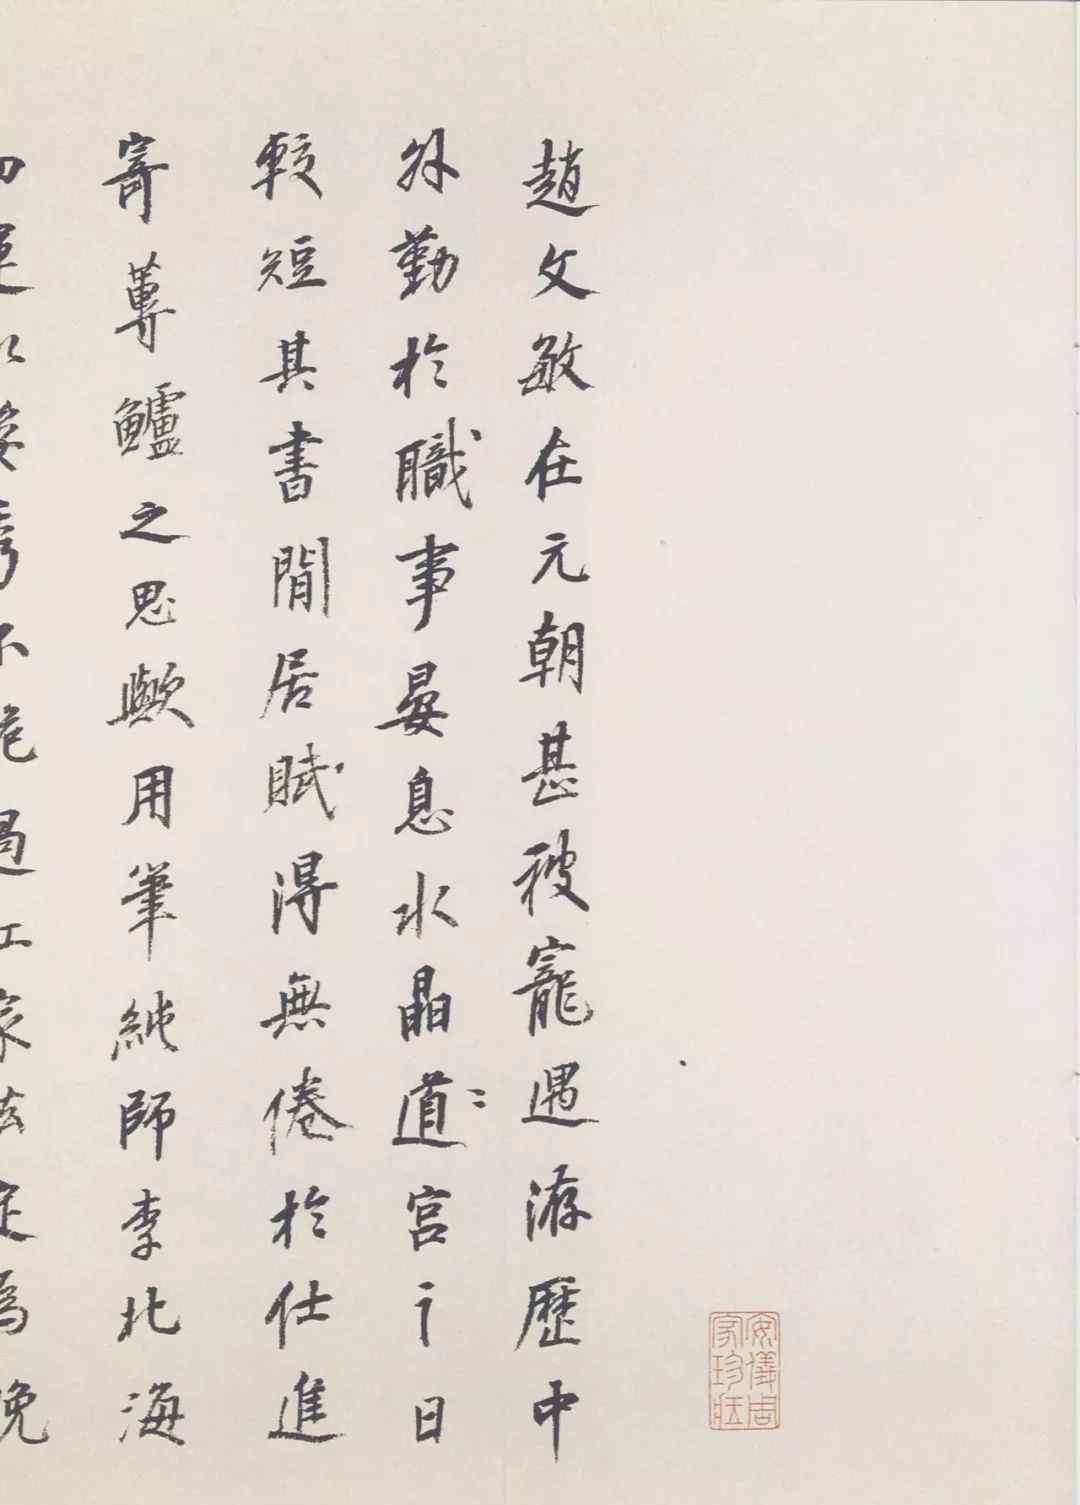 趙文敏在元朝甚被寵遇游歷中
外勤於職事晏息水晶道宮之日
較短其書閒居賦得無倦於仕進
寄蓴鱸之思歟用筆純師李北海
安儀周家珍藏